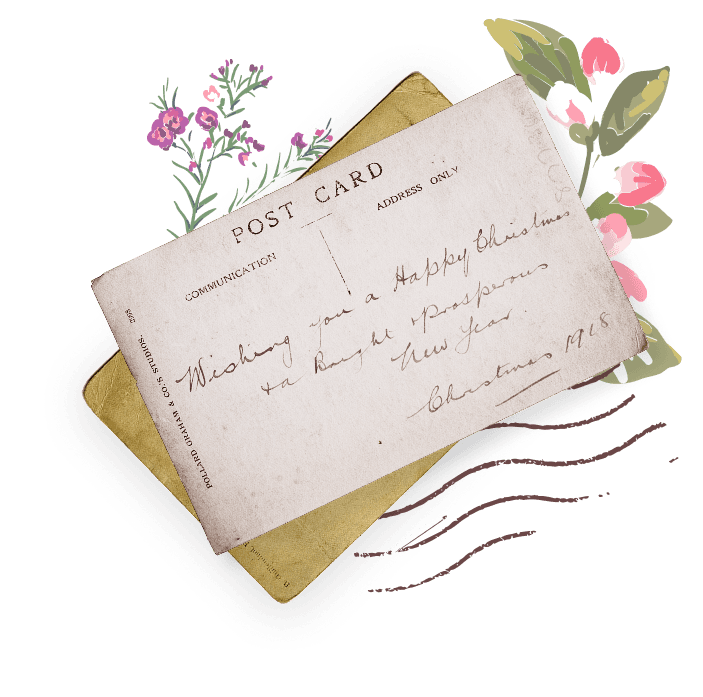 POST CARD
COMMUNICATION
ADDRESS ONLY
Wishing you a Happy Christmas
+ a bright & Prosperous
New Year.
Christmas 1918
258
POLLARD GRAHAM & CO.'S STUDIOS.